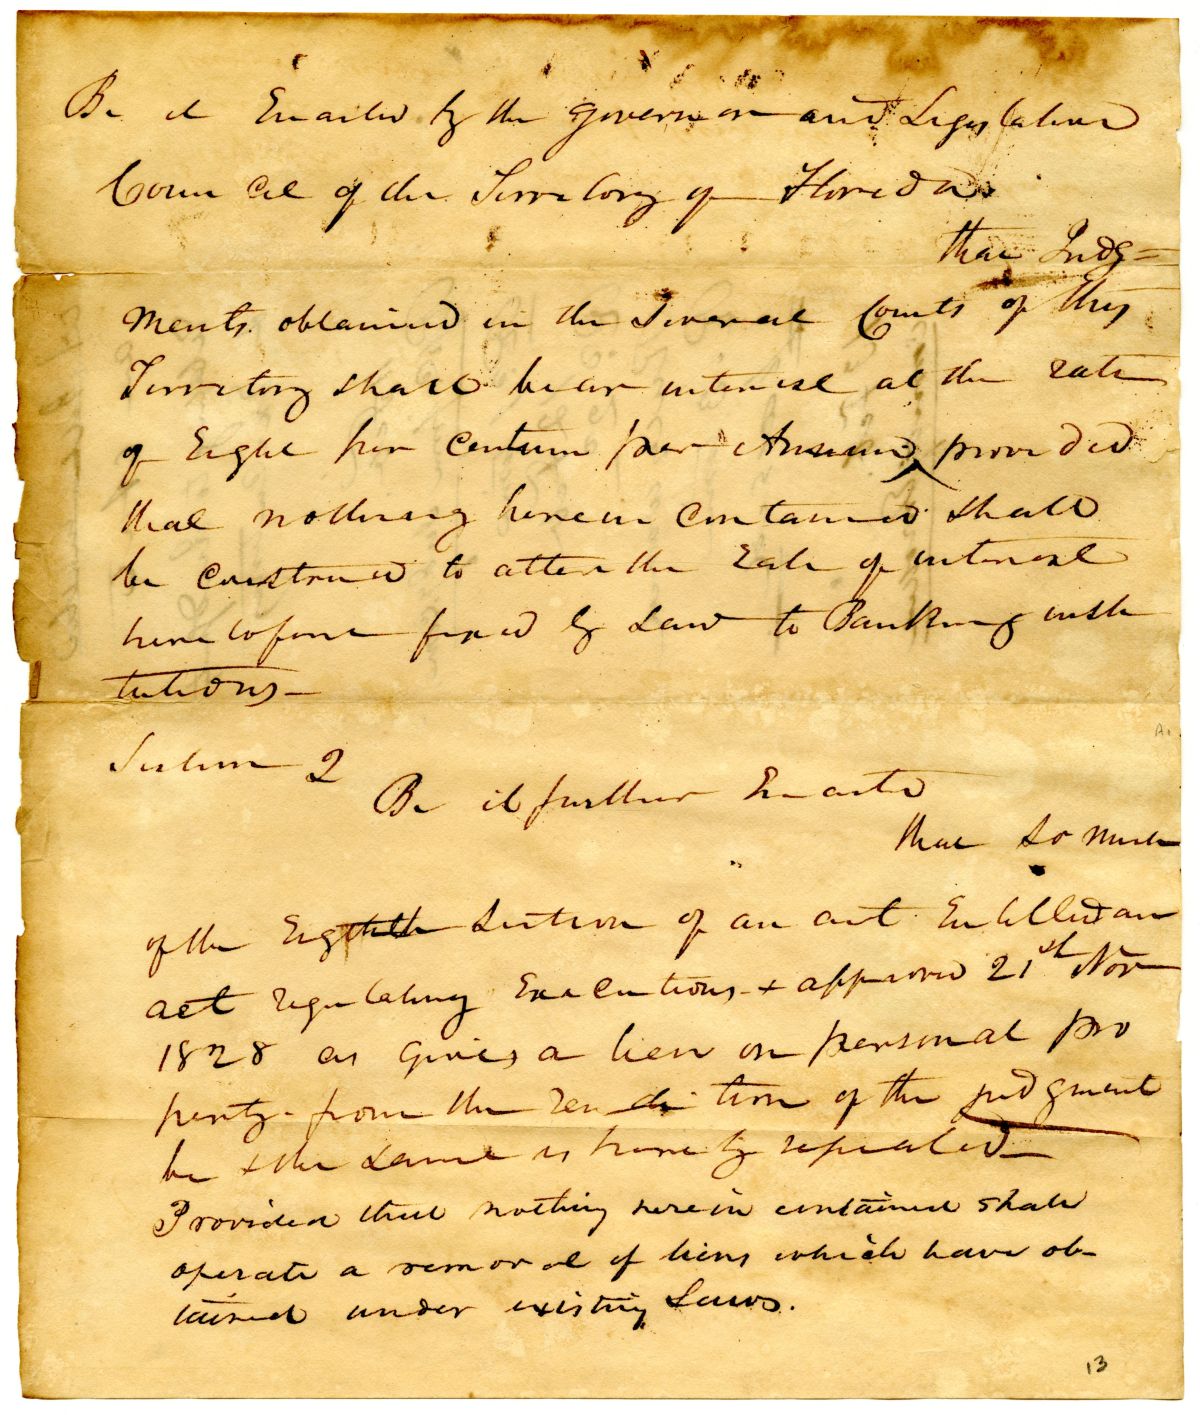 Be it Enacted by the Governor and Legislative
Council of the Territory of Florida.
that Judg=
ments obtained in the Several Courts of this
Territory shall bear interest at the rate
of Eight per centum per Annum, provided
that nothing herein contained shall
be construed to alter the Rate of interest
heretofore fixed by Law to Banking insti
tutions—
Section 2
Be it further Enacted
that so much
of the Eighth Section of an act Entitled an
act regulating Executions & approved 21st Nov
1828 as gives a lien on personal pro
perty from the rendition of the judgment
be & the same is hereby repealed
Provided that nothing herein contained shall
operate a removal of liens which have ob-
tained under existing Laws.
13